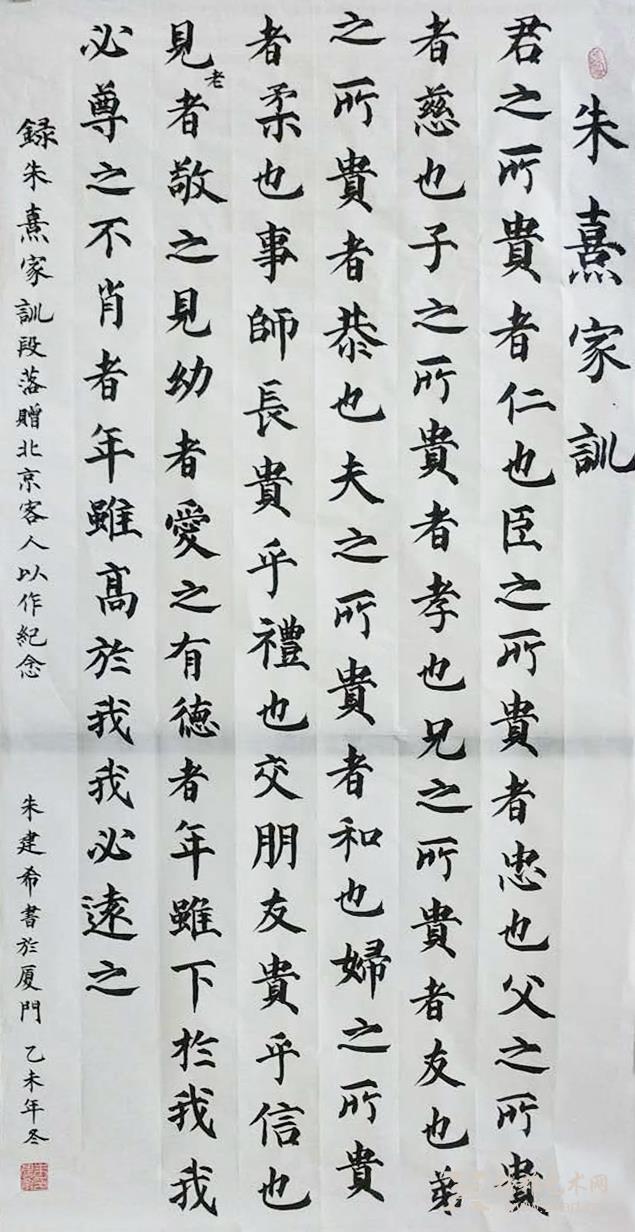 朱熹家訓
君之所貴者仁也臣之所貴者忠也父之所貴
者慈也子之所貴者孝也兄之所貴者友也弟
之所貴者恭也夫之所貴者和也婦之所貴
者柔也事師長貴乎禮也交朋友貴乎信也
見老者敬之見幼者愛之有德者年雖下於我我
必尊之不肖者年雖高於我我必遠之
録朱熹家訓段落贈北京客人以作紀念
朱建希書於厦門 乙未年冬